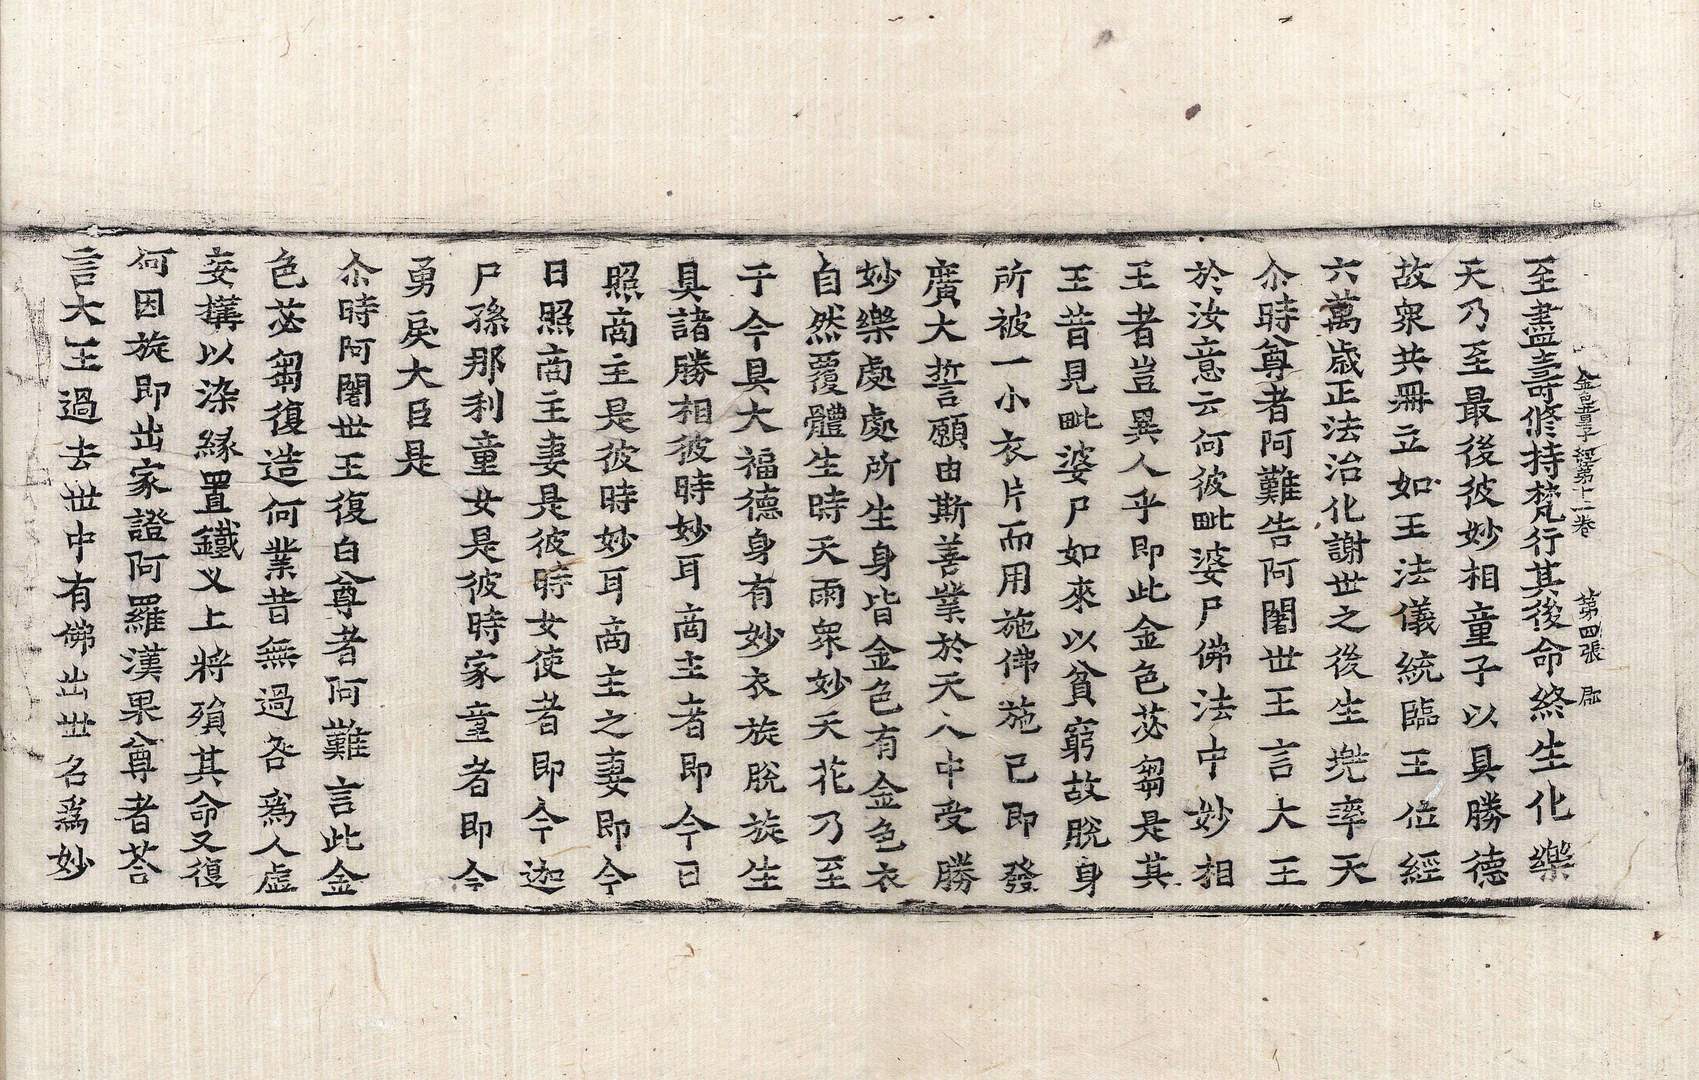 金色童子經第十二卷　第四張
至盡壽修持梵行其後命終生化樂
天乃至最後彼妙相童子以具勝德
故衆共冊立如王法儀統臨王位經
六萬歲正法治化謝世之後生兠率天
尒時尊者阿難告阿闍世王言大王
於汝意云何彼毗婆尸佛法中妙相
王者豈異人乎即此金色苾芻是其
王昔見毗婆尸如來以貧窮故脫身
所被一小衣片而用施佛施已即發
廣大誓願由斯善業於天人中受勝
妙樂處處所生身皆金色有金色衣
自然覆體生時天雨衆妙天花乃至
于今具大福德身有妙衣旋脫旋生
具諸勝相彼時妙耳商主者即今日
照商主是彼時妙耳商主之妻即今
日照商主妻是彼時女使者即今迦
尸孫那利童女是彼時家童者即今
勇戾大臣是
尒時阿闍世王復白尊者阿難言此金
色苾芻復造何業昔無過咎爲人虛
妄搆以染緣置鐵义上將殞其命又復
何因旋即出家證阿羅漢果尊者荅
言大王過去世中有佛出世名爲妙